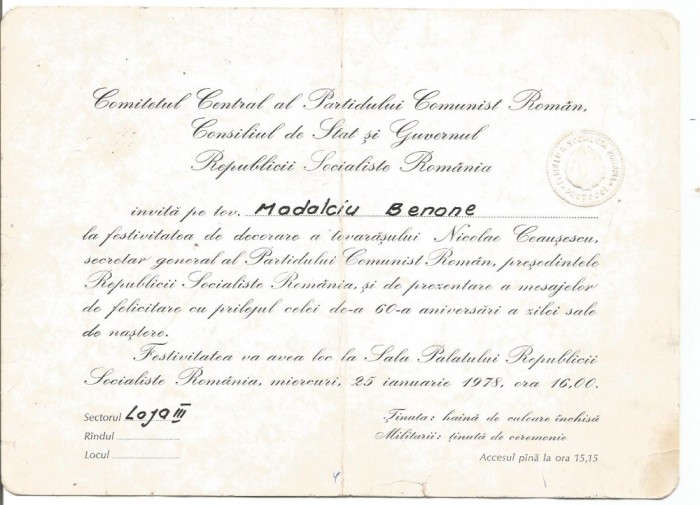 Comitetul Central al Partidului Comunist Român,
Consiliul de Stat și Guvernul
Republicii Socialiste România
invită pe tov. Madalciu Benone
la festivitatea de decorare a tovarășului Nicolae Ceaușescu,
secretar general al Partidului Comunist Român, președintele
Republicii Socialiste România, și de prezentare a mesajelor
de felicitare cu prilejul celei de-a 60-a aniversări a zilei sale
de naștere.
Festivitatea va avea loc la Sala Palatului Republicii
Socialiste România, miercuri, 25 ianuarie 1978, ora 16,00.
Sectorul Loja III
Rîndul
Locul
Ținuta: haină de culoare închisă
Militarii: ținută de ceremonie
Accesul pînă la ora 15,15